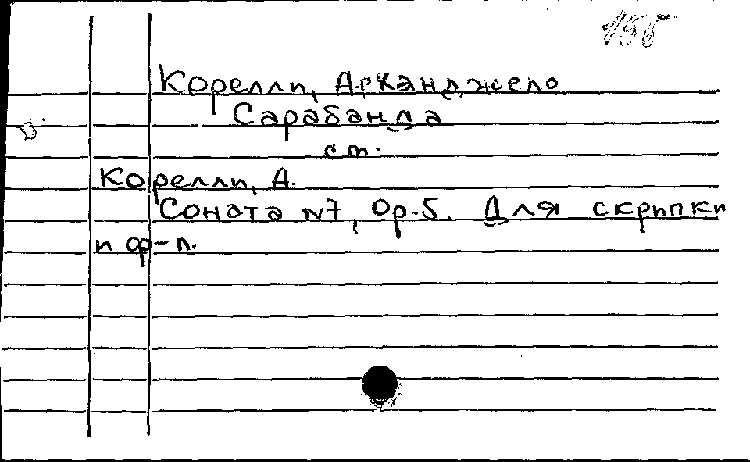 155
Корелли, Арканджело
Сарабанда
ст.
Корелли, А.
Соната №7, Op.5. Для скрипки
и ф-п.